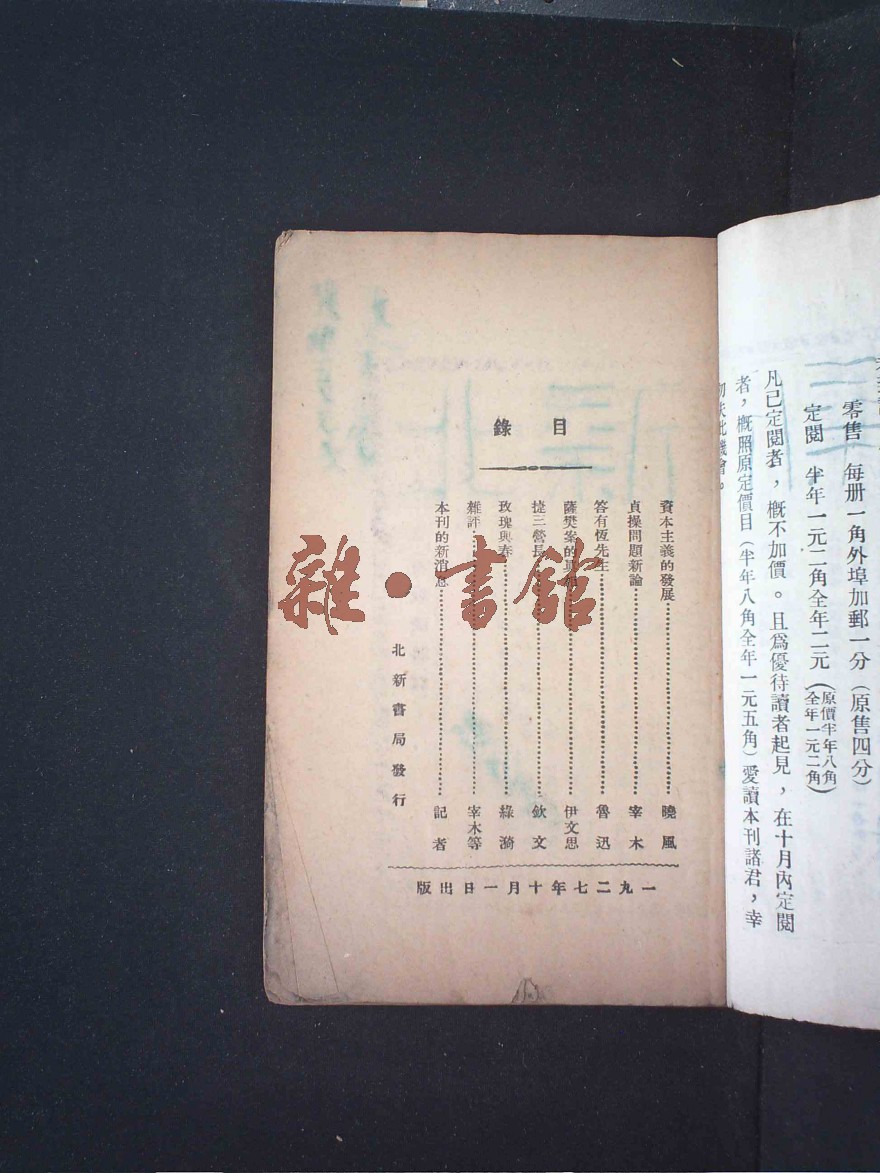 零售　每册一角外埠加郵一分（原售四分）
定閱　半年一元二角全年二元（原價半年八角全年一元二角）
凡已定閱者，概不加價。且爲優待讀者起見，在十月內定閱
者，概照原定價目（半年八角全年一元五角）愛讀本刊諸君，幸
勿失此機會。
目錄
資本主義的發展………曉風
貞操問題新論………宰木
答有恆先生………魯迅
薩樊案的………伊文思
捷三營長………欽文
玫瑰與春………綠漪
雜評………宰木等
本刊的新消息………記者
北新書局發行
一九二七年十月一日出版
雜·書館